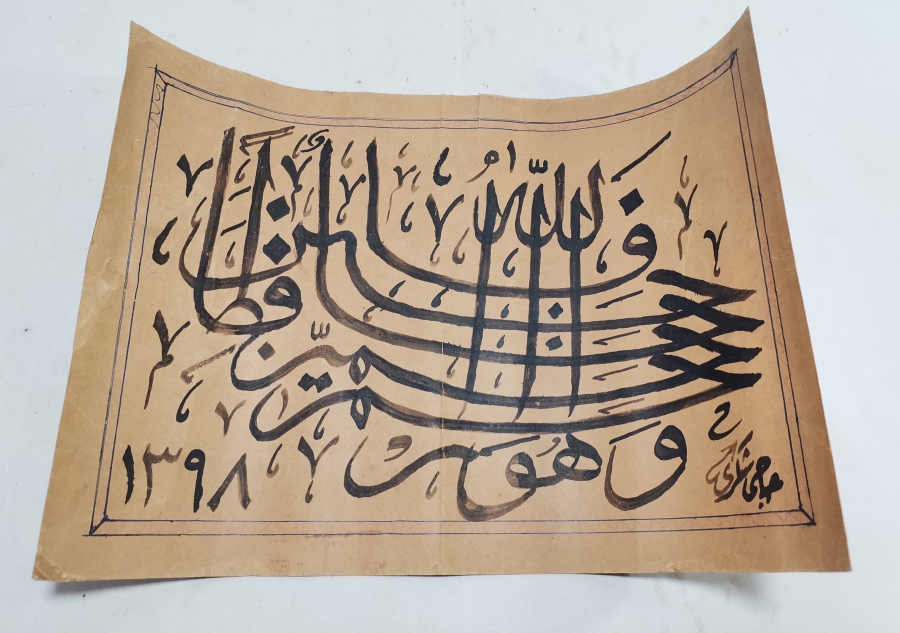 فالله خير حافظا
وهو ارحم الراحمين
١٣٩٨